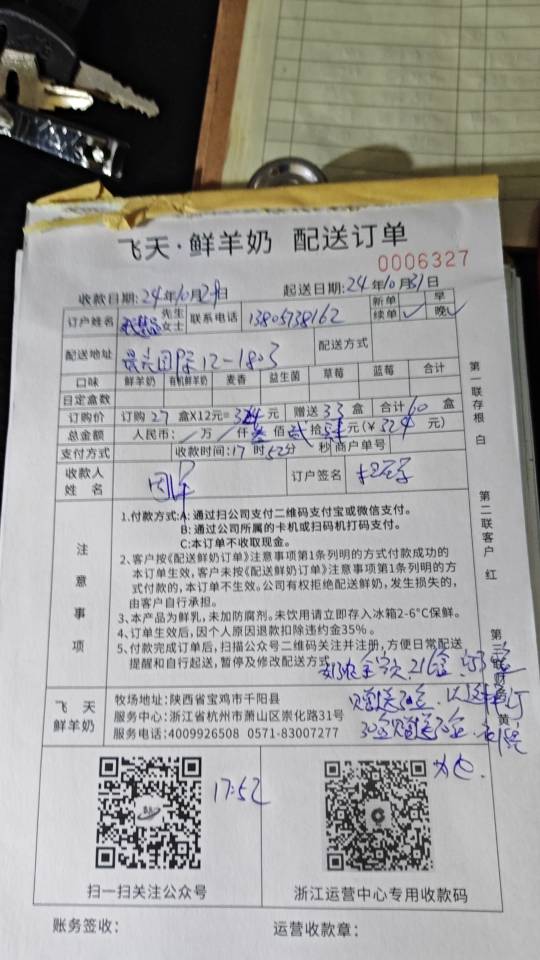 飞天·鲜羊奶 配送订单
0006327
收款日期:24年10月29日 起送日期:24年10月31日
订户姓名 先生 女士 联系电话 13805738162 新单 续单✓ 早 晚✓
配送地址 12-1803 配送方式
口味 鲜羊奶 有机鲜羊奶 麦香 益生菌 草莓 蓝莓 合计
日定盒数
订购价 订购27盒X12元=324元 赠送33盒 合计60盒
总金额 人民币: 万 仟叁佰贰拾肆元(¥324元)
支付方式 收款时间:17时52分 秒 商户单号
收款人姓名 订户签名
注意事项
1.付款方式:A:通过扫公司支付二维码支付宝或微信支付。
B:通过公司所属的卡机或扫码机打码支付。
C:本订单不收取现金。
2、客户按《配送鲜奶订单》注意事项第1条列明的方式付款成功的
本订单生效,客户未按《配送鲜奶订单》注意事项第1条列明的方
式付款的,本订单不生效。公司有权拒绝配送鲜奶,发生损失的,
由客户自行承担。
3、本产品为鲜乳,未加防腐剂。未饮用请立即存入冰箱2-6°C保鲜。
4、订单生效后,因个人原因退款扣除违约金35%。
5、付款完成订单后,扫描公众号二维码关注并注册,方便日常配送
提醒和自行起送,暂停及修改配送方式
216盒
赠送 盒
30盒赠送 盒
为止.
飞天鲜羊奶
牧场地址:陕西省宝鸡市千阳县
服务中心:浙江省杭州市萧山区崇化路31号
服务电话:4009926508 0571-83007277
17:52
扫一扫关注公众号 浙江运营中心专用收款码
账务签收: 运营收款章:
第一联存根 白
第二联客户 红
第三联财务 黄